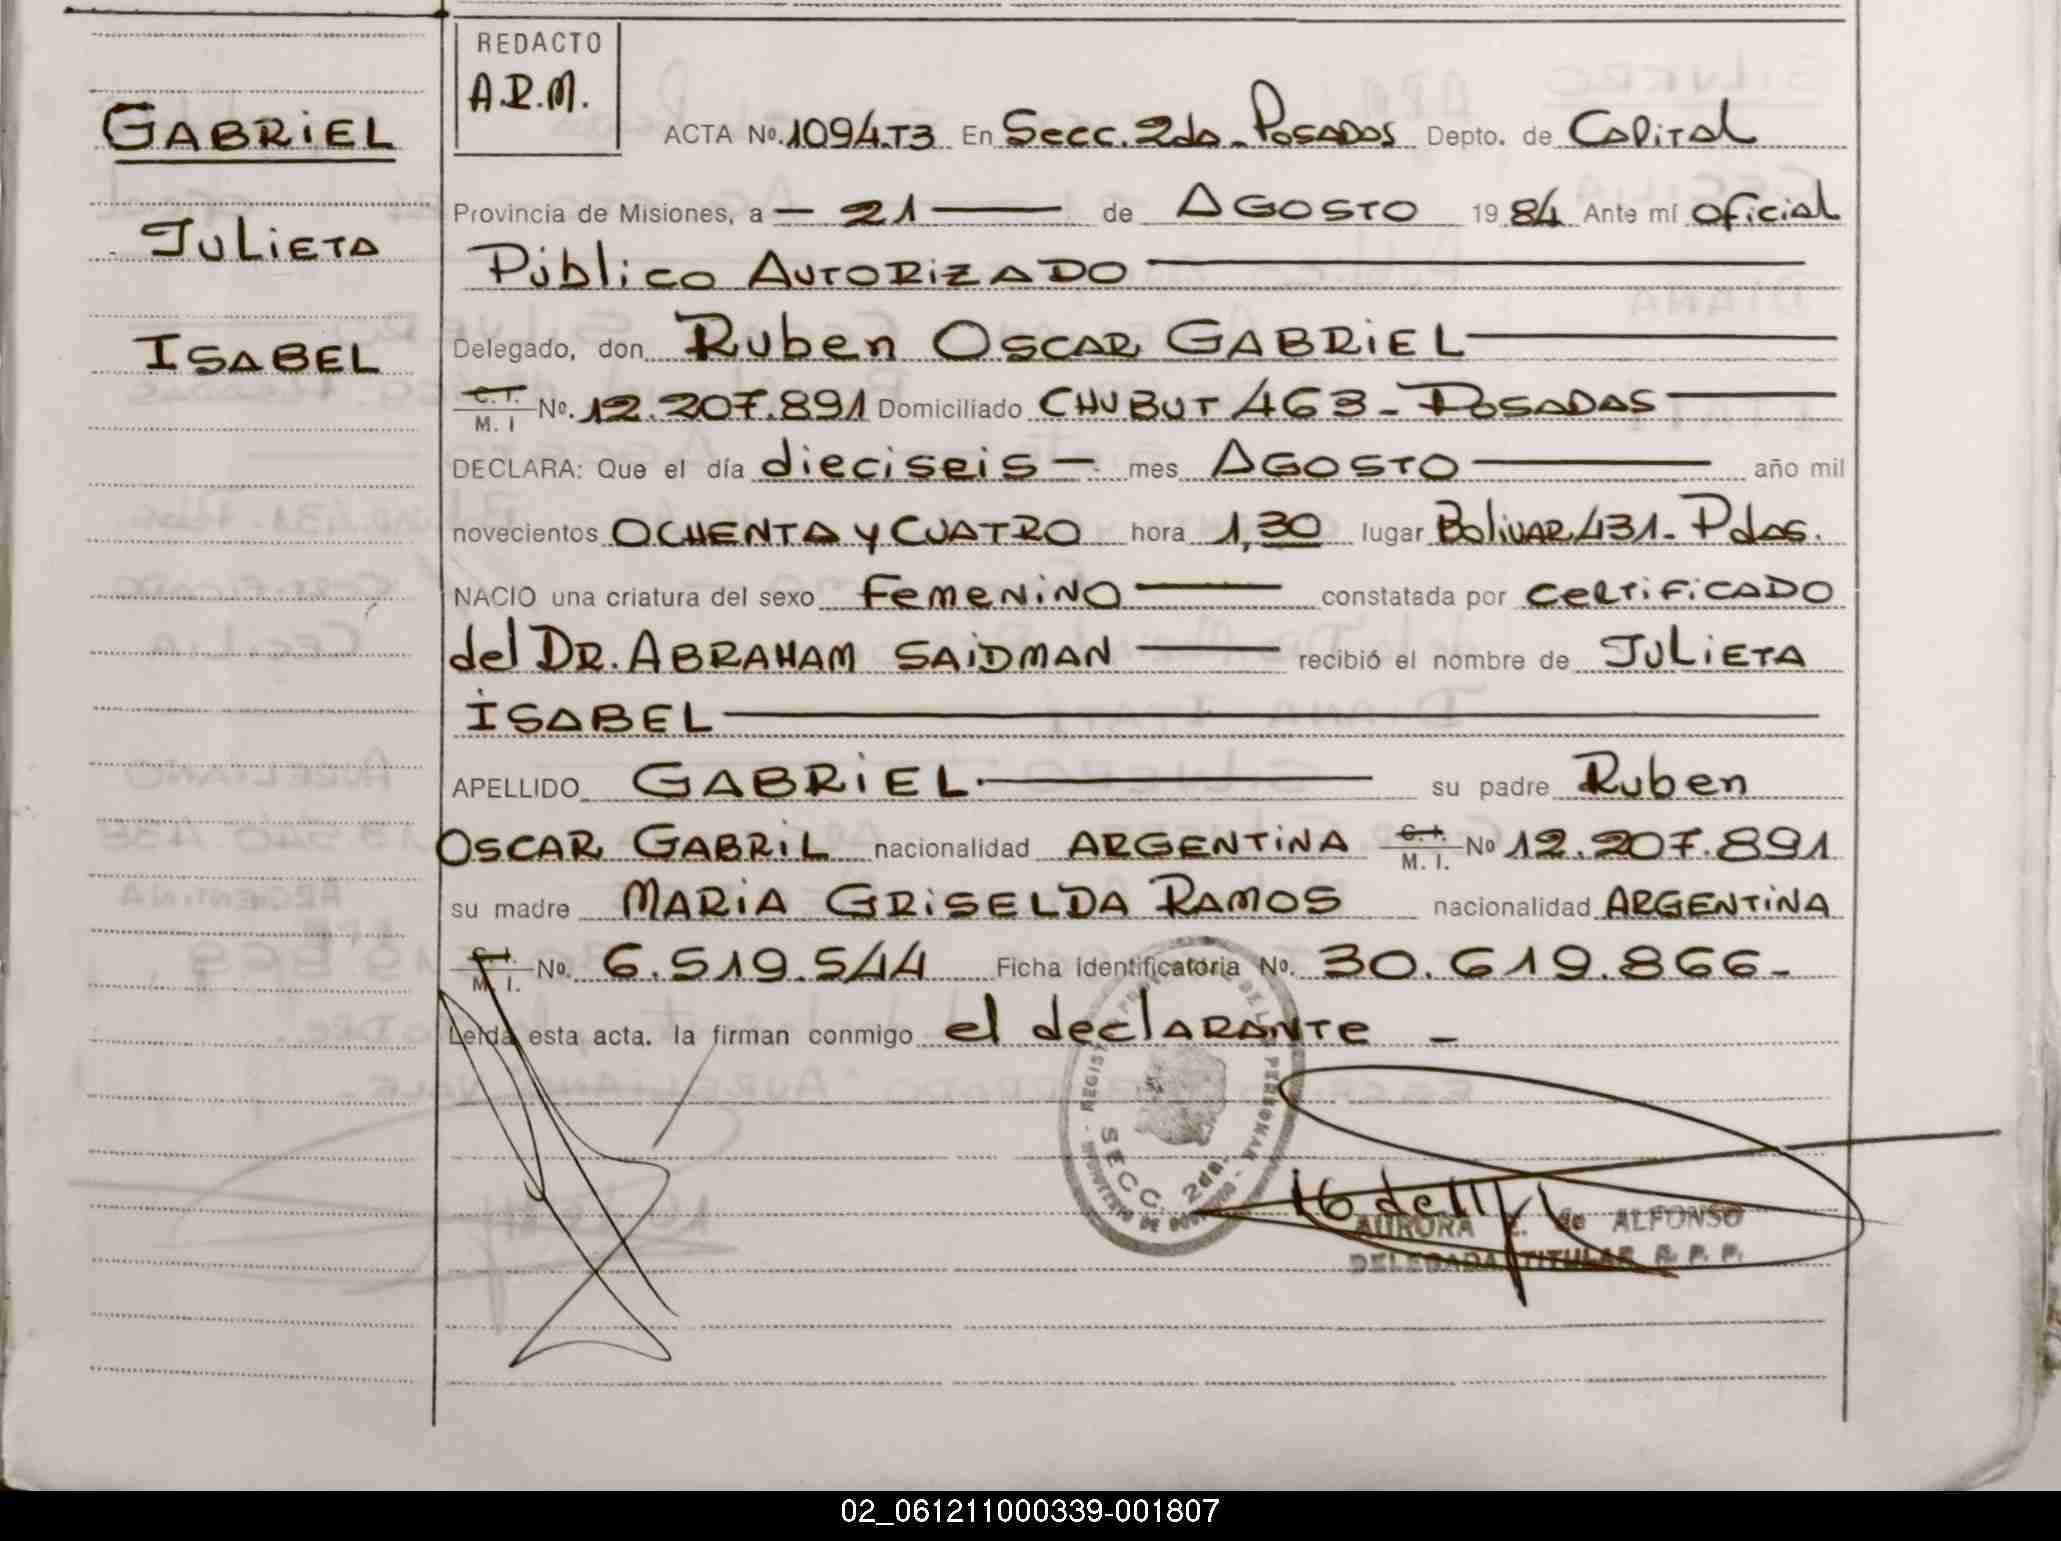 REDACTO
A.R.M.
GABRIEL
JULIETA
ISABEL
ACTA Nº. 1094.T3 En Secc. 2da - POSADAS Depto. de CAPITAL
Provincia de Misiones, a — 21 — de AGOSTO 19 84 Ante mí oficial
Público AUTORIZADO
Delegado, don Ruben OSCAR GABRIEL
C.I. M. I Nº. 12.207.891 Domiciliado CHUBUT 463 - POSADAS
DECLARA: Que el día dieciseis — mes AGOSTO año mil
novecientos OCHENTA Y CUATRO hora 1,30 lugar BOLIVAR 431 - Pdas.
NACIO una criatura del sexo FEMENINO constatada por CERTIFICADO
del DR. ABRAHAM SAIDMAN recibió el nombre de JULIETA
ISABEL
APELLIDO GABRIEL su padre Ruben
OSCAR GABRIL nacionalidad ARGENTINA C.I. M. I. Nº 12.207.891
su madre MARIA GRISELDA RAMOS nacionalidad ARGENTINA
C.I. M. I. Nº. 6.519.544 Ficha identificatoria Nº. 30.619.866-
Leída esta acta. la firman conmigo el declarante -
SECC. 2da.
AURORA de ALFONSO
DELEGADA TITULAR R. P. P.
02_061211000339-001807